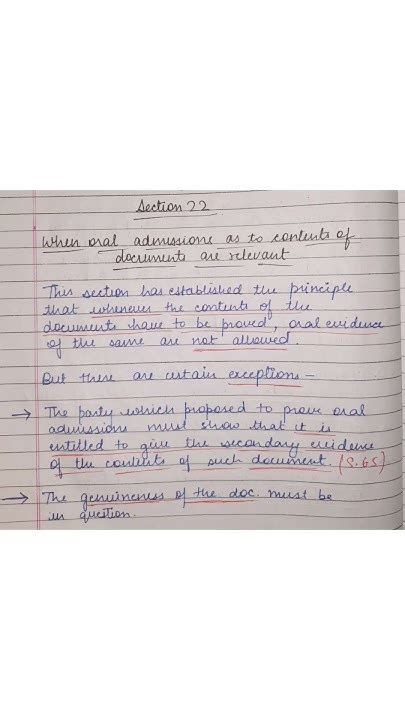 Section 22
When oral admissions as to contents of
documents are relevant
This section has established the principle
that whenever the contents of the
documents have to be proved, oral evidence
of the same are not allowed.
But there are certain exceptions -
→ The party which proposed to prove oral
admissions must show that it is
entitled to give the secondary evidence
of the contents of such document. (S. 65)
→ The genuineness of the doc. must be
in question.